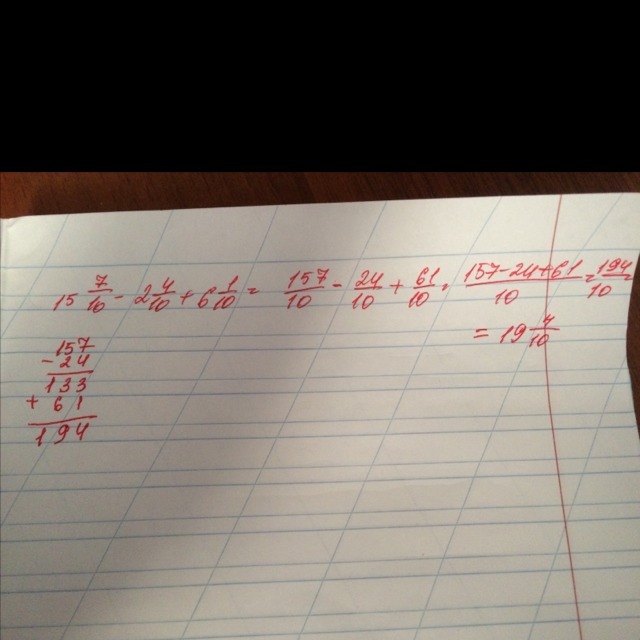 15 7/10 - 2 4/10 + 6 1/10 = 157/10 - 24/10 + 61/10 = (157-24+61)/10 = 194/10 =
= 19 4/10
157
- 24
133
+ 61
194